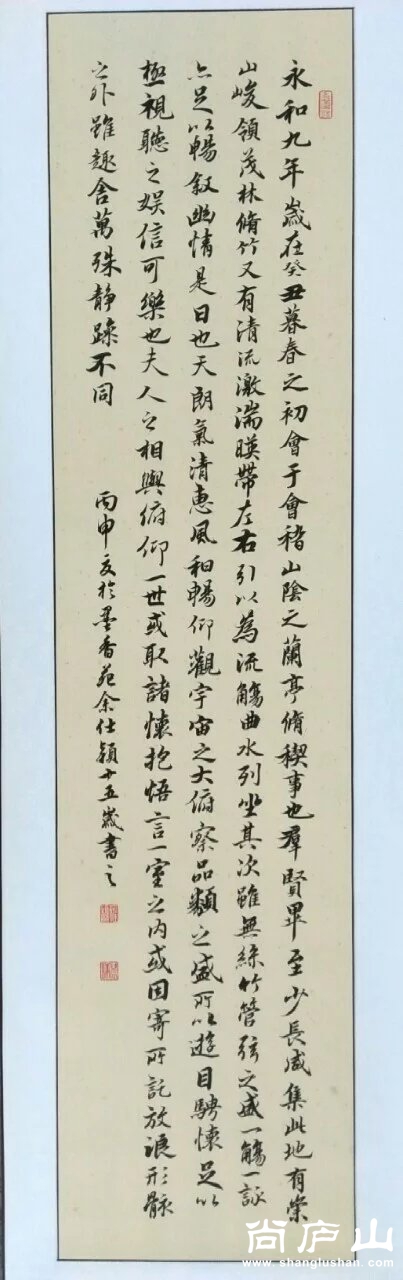 永和九年歲在癸丑暮春之初會于會稽山陰之蘭亭脩稧事也羣賢畢至少長咸集此地有崇
山峻領茂林脩竹又有清流激湍暎帶左右引以為流觴曲水列坐其次雖無絲竹管弦之盛一觴一詠
亦足以暢叙幽情是日也天朗氣清惠風和暢仰觀宇宙之大俯察品類之盛所以遊目騁懷足以
極視聽之娛信可樂也夫人之相與俯仰一世或取諸懷抱悟言一室之內或因寄所託放浪形骸
之外雖趣舍萬殊静躁不同
丙申夏於墨香苑余仕穎十五歲書之
尚庐山
www.shanglushan.com